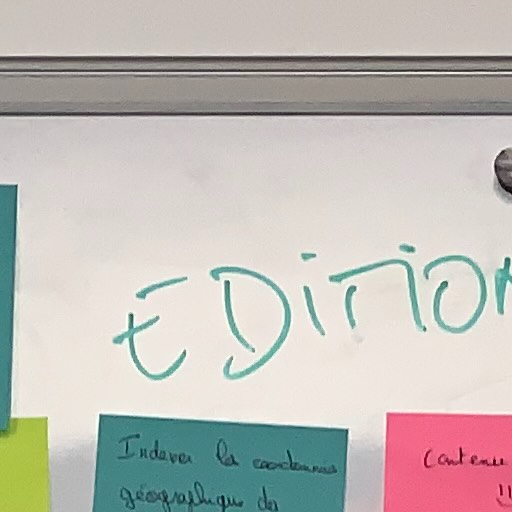 EDITION
Indexer les coordonnées
géographique de
Contenu
!!